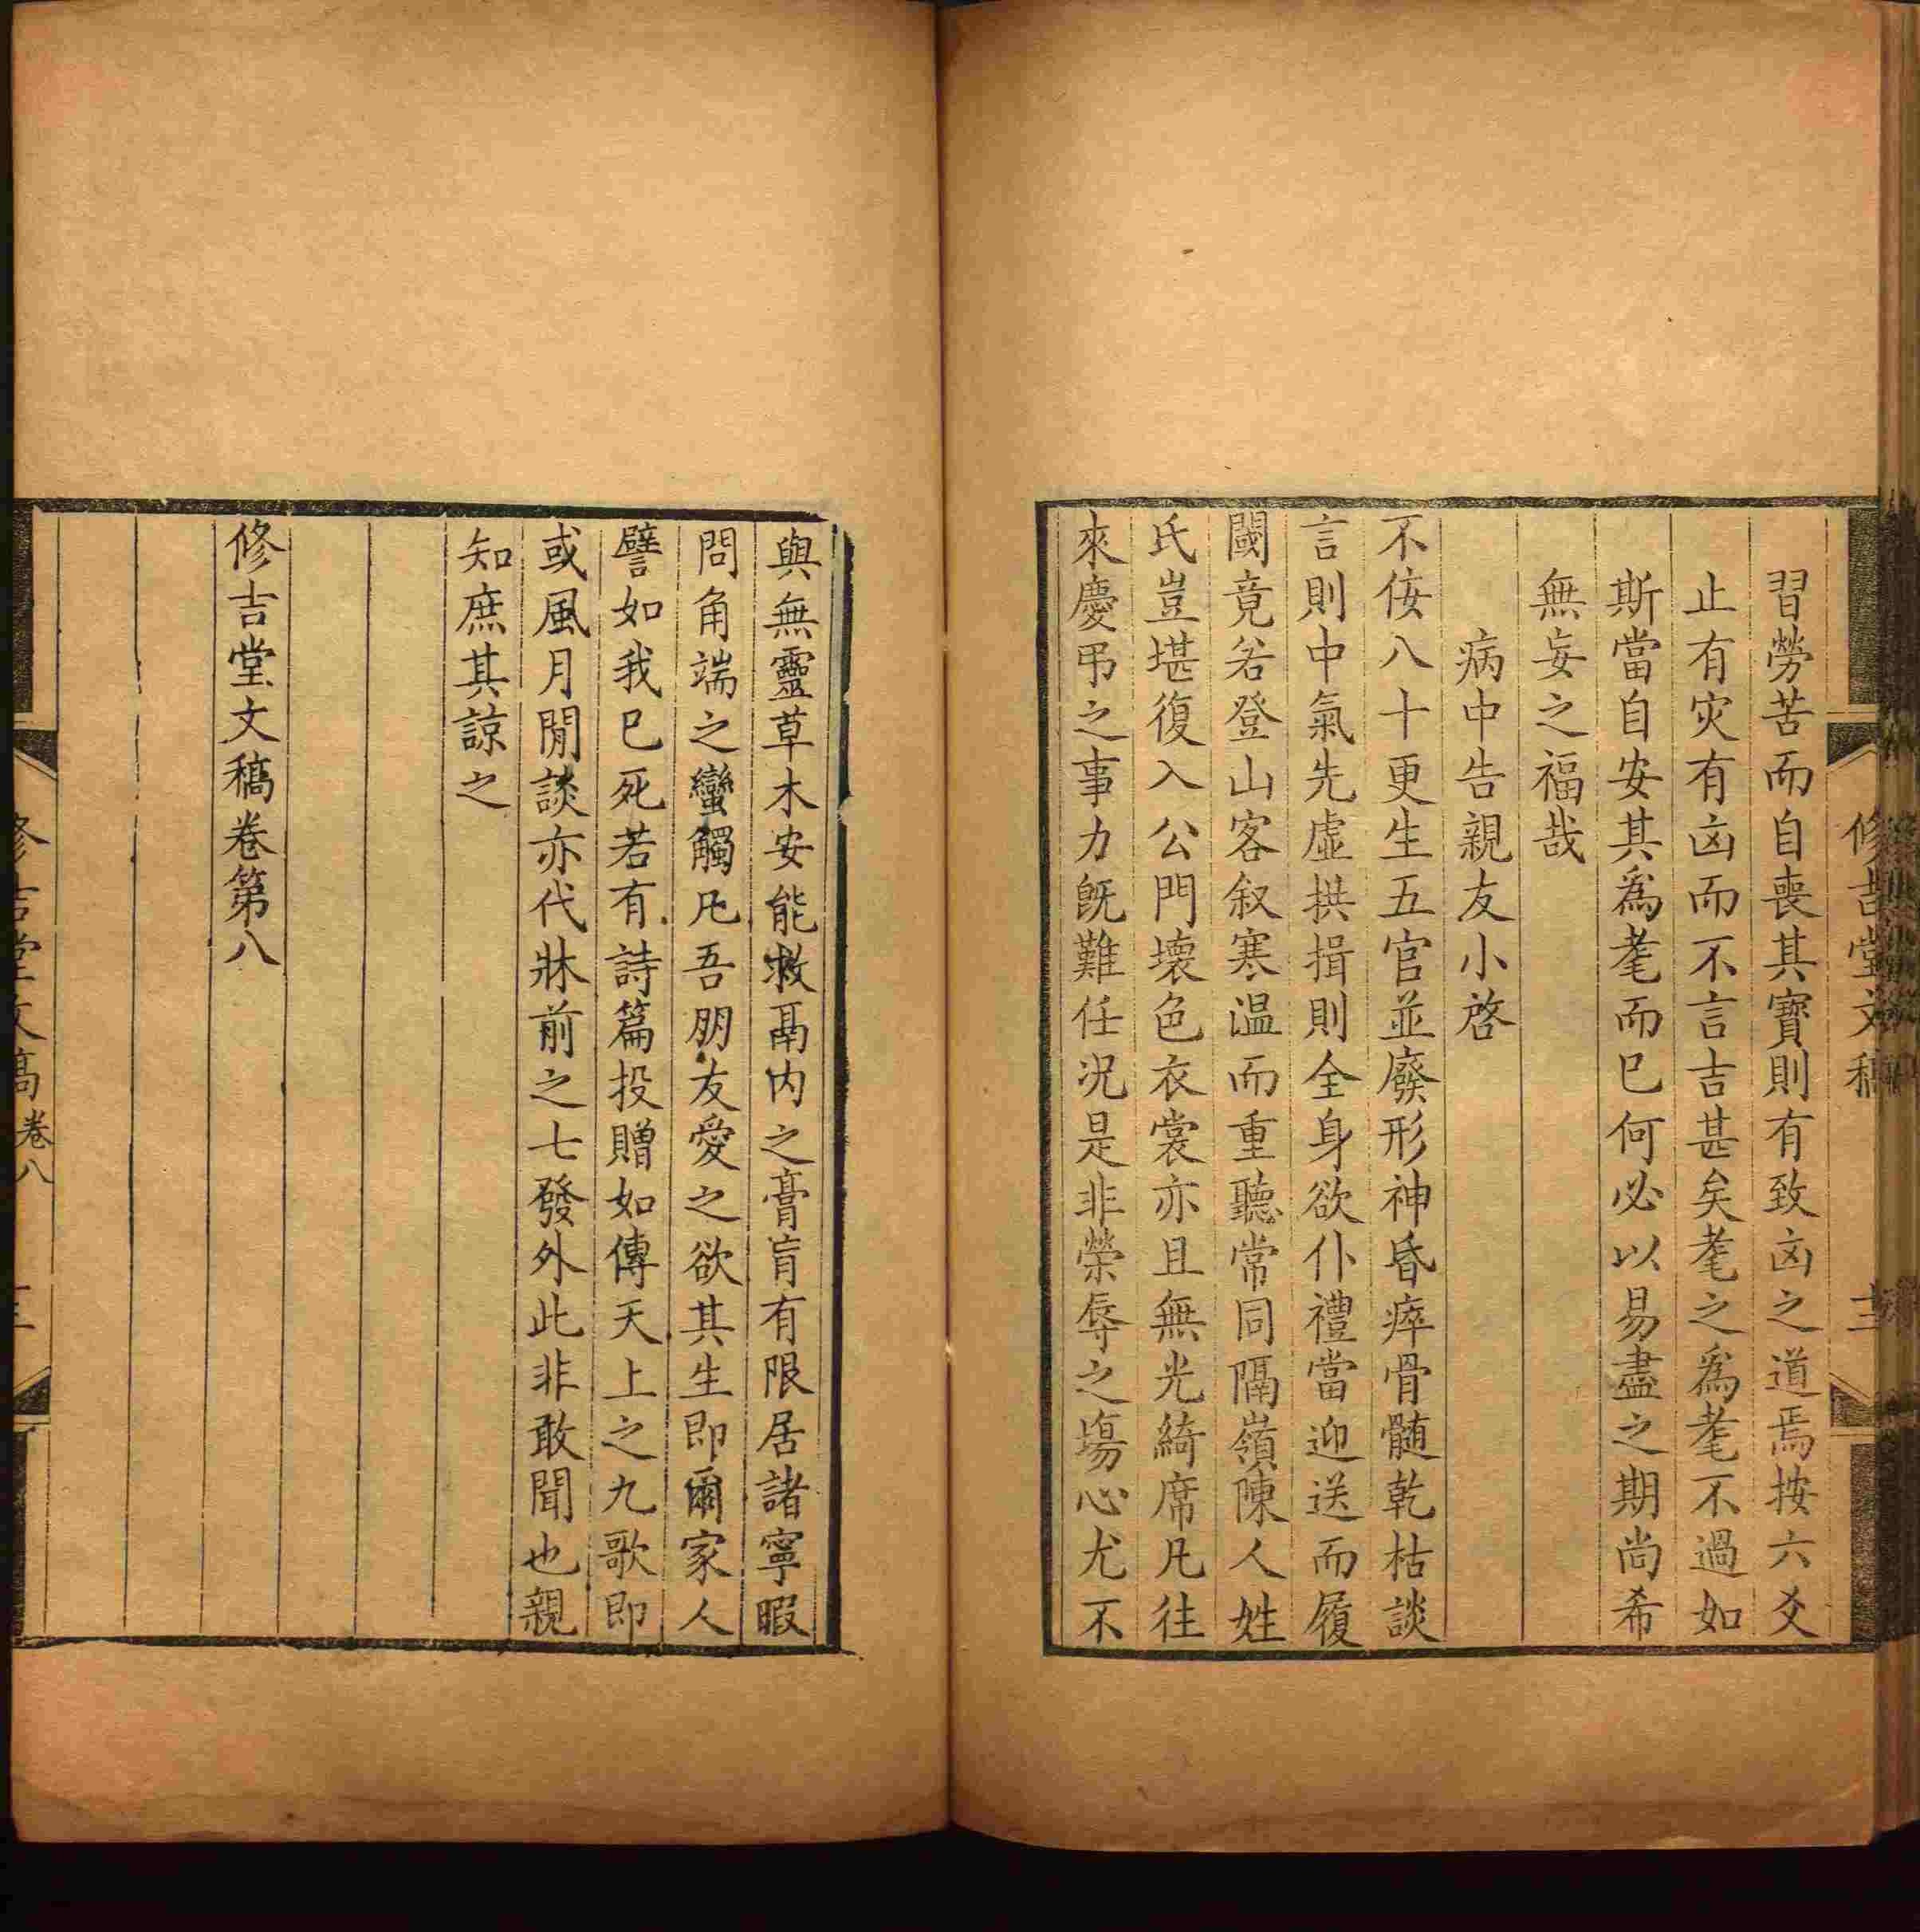 修吉堂文稿
十二
習勞苦而自喪其寶則有致凶之道焉按六爻
止有灾有凶而不言吉甚矣耄之爲耄不過如
斯當自安其爲耄而已何必以易盡之期尚希
無妄之福哉
病中告親友小啓
不佞八十更生五官並廢形神昏瘁骨髄乾枯談
言則中氣先虛拱揖則全身欲仆禮當迎送而履
閾竟若登山客叙寒温而重聽常同隔嶺陳人姓
氏豈堪復入公門壞色衣裳亦且無光綺席凡往
來慶弔之事力旣難任况是非榮辱之塲心尤不
與無靈草木安能救鬲内之膏肓有限居諸寧暇
問角端之蠻觸凡吾朋友愛之欲其生即爾家人
譬如我已死若有詩篇投贈如傳天上之九歌即
或風月閒談亦代牀前之七發外此非敢聞也親
知庶其諒之
修吉堂文稿卷第八
修吉堂文稿
卷八